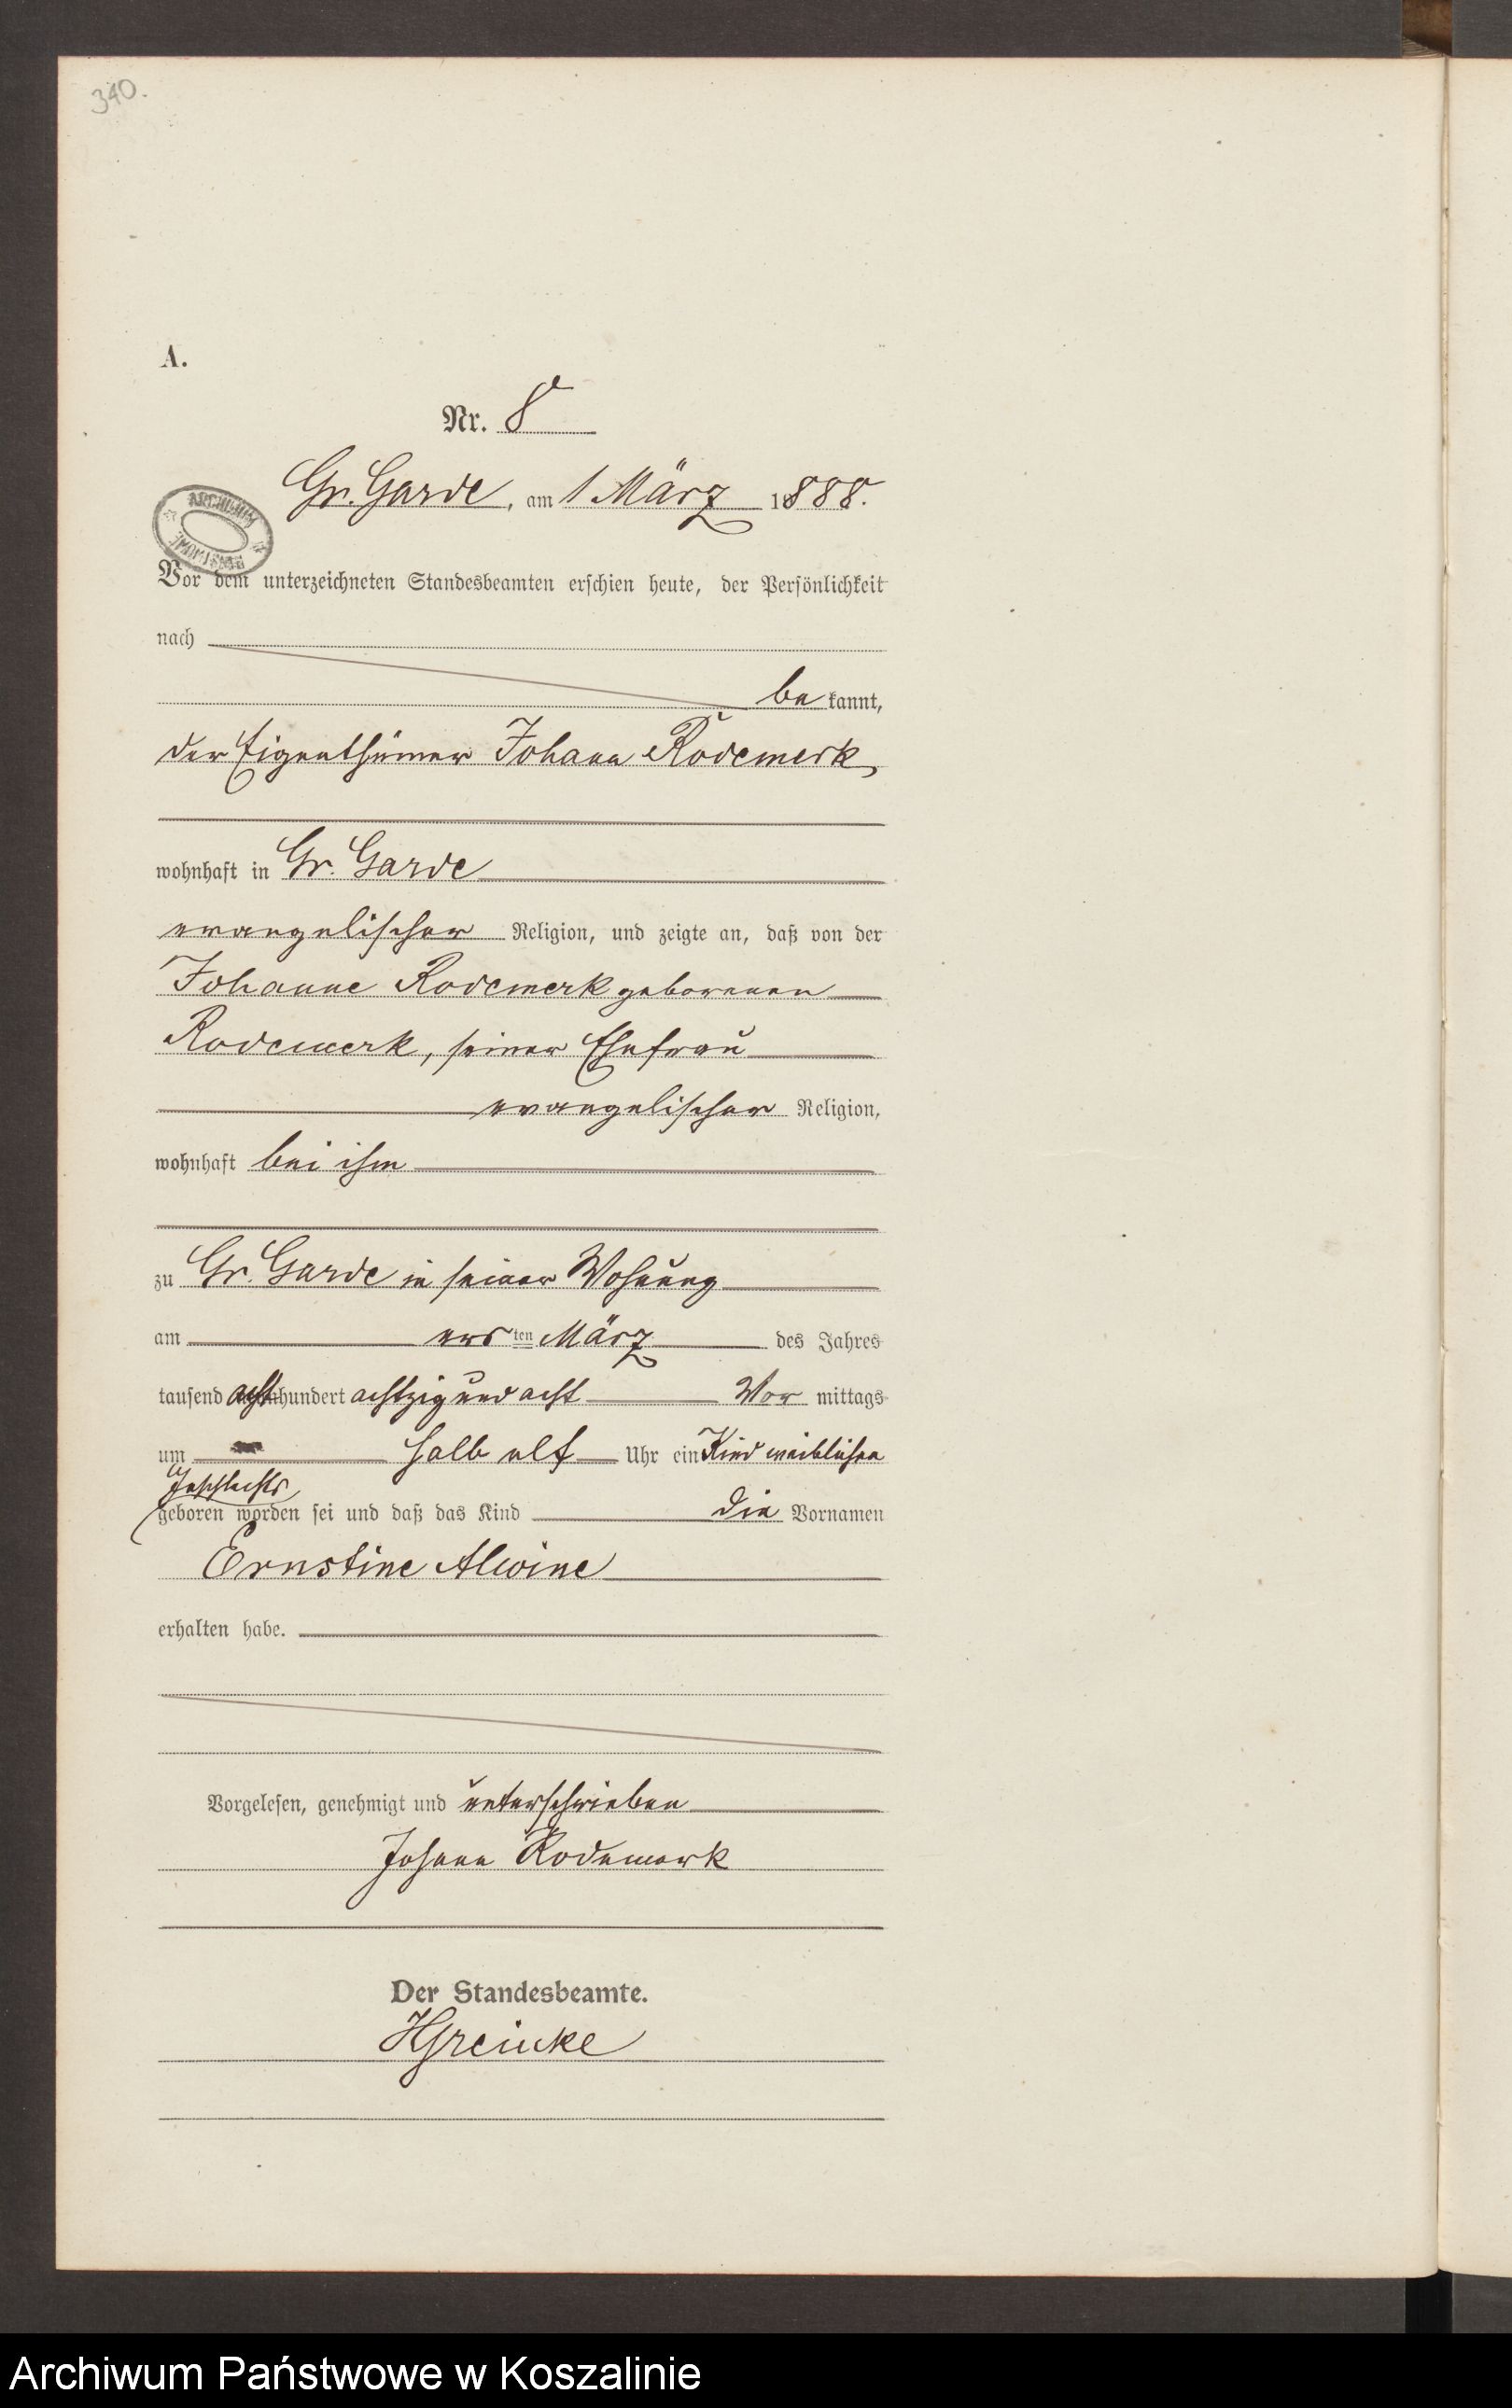 340.
A.
Nr. 8
Gr. Garde, am 1 März 1888.
ARCHIWUM
Vor dem unterzeichneten Standesbeamten erschien heute, der Persönlichkeit
nach
be kannt,
der Eigenthümer Johann Rodemerk,
wohnhaft in Gr. Garde
evangelischer Religion, und zeigte an, daß von der
Johanne Rodemerk geborenen
Rodemerk, seiner Ehefrau
evangelischer Religion,
wohnhaft bei ihm
zu Gr. Garde in seiner Wohnung
am ersten März des Jahres
tausend achthundert achtzig und acht Vor mittags
um halb elf Uhr ein Kind weiblichen
Geschlechts
geboren worden sei und daß das Kind die Vornamen
Ernstine Alwine
erhalten habe.
Vorgelesen, genehmigt und unterschrieben
Johann Rodemerk
Der Standesbeamte.
HGreinke
Archiwum Państwowe w Koszalinie